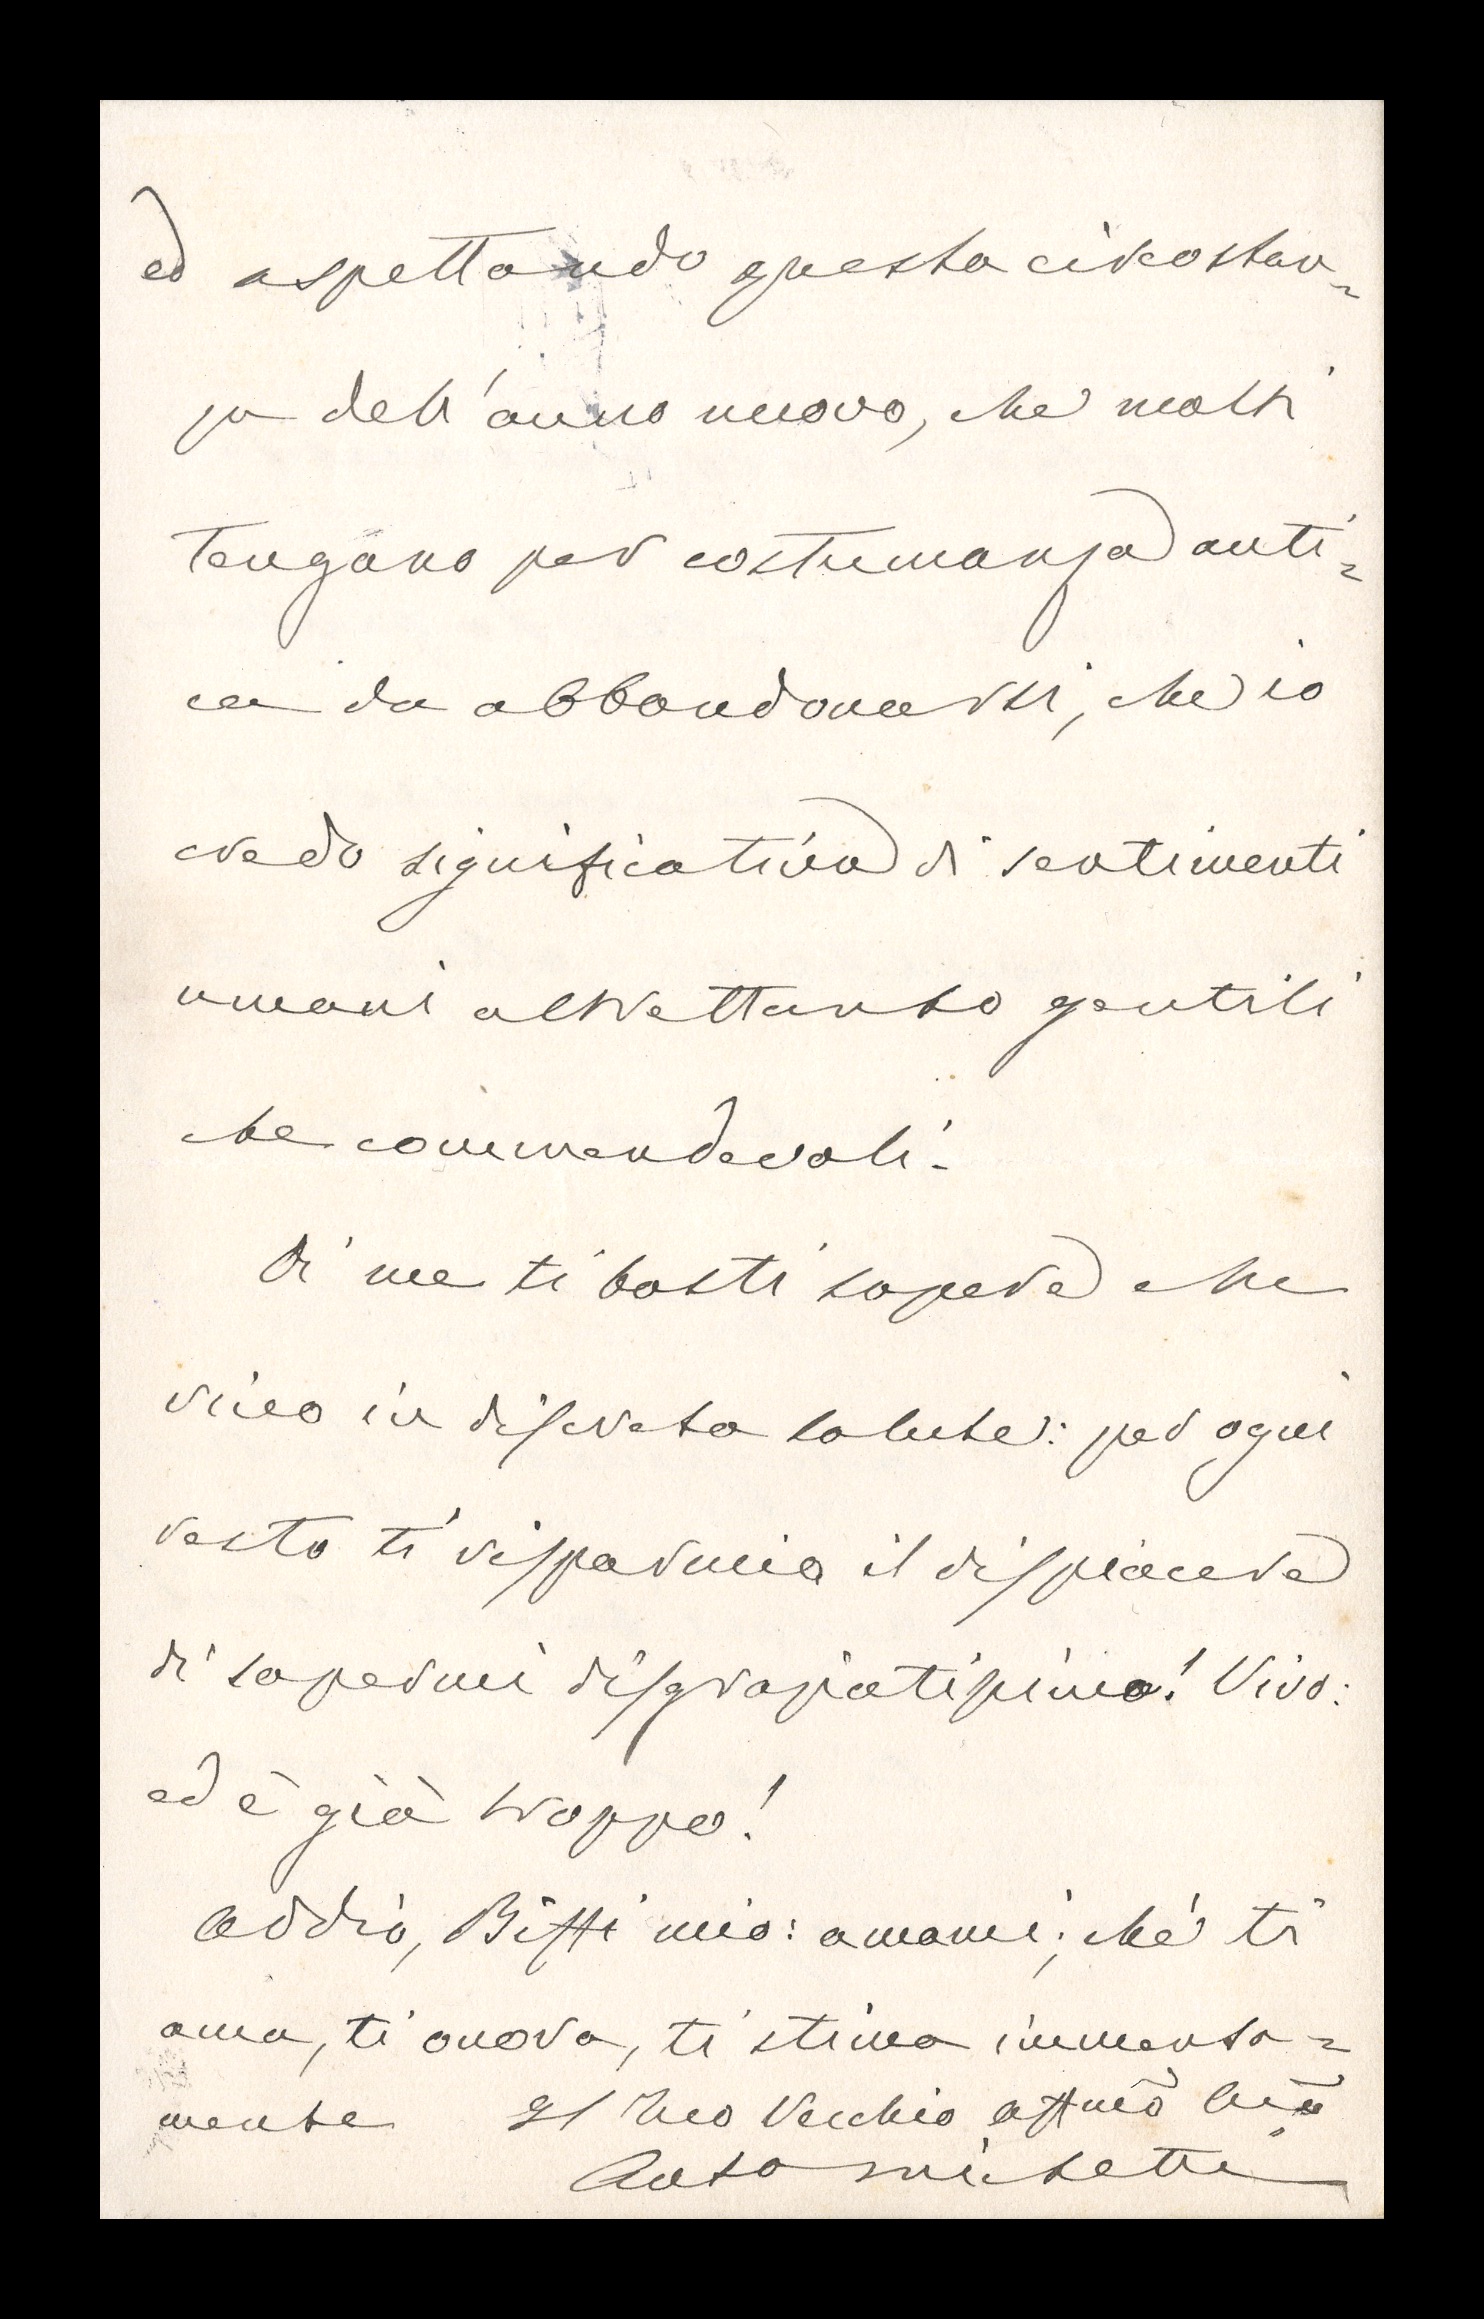 ed aspettando questa circostan=
za dell'anno nuovo, che molti
tengono per costumanza anti=
ca da abbandonarsi, che io
credo significativa di sentimenti
umani altrettanto gentili
che commendevoli.
Di me ti basti sapere che
vivo in discreta salute: per ogni
resto ti risparmio il dispiacere
di sapermi disgraziatissimo! Vivo:
ed è già troppo!
Addio, Biffi mio: amami; ché ti
ama, ti onora, ti stima immensa=
mente Il tuo Vecchio affmõ